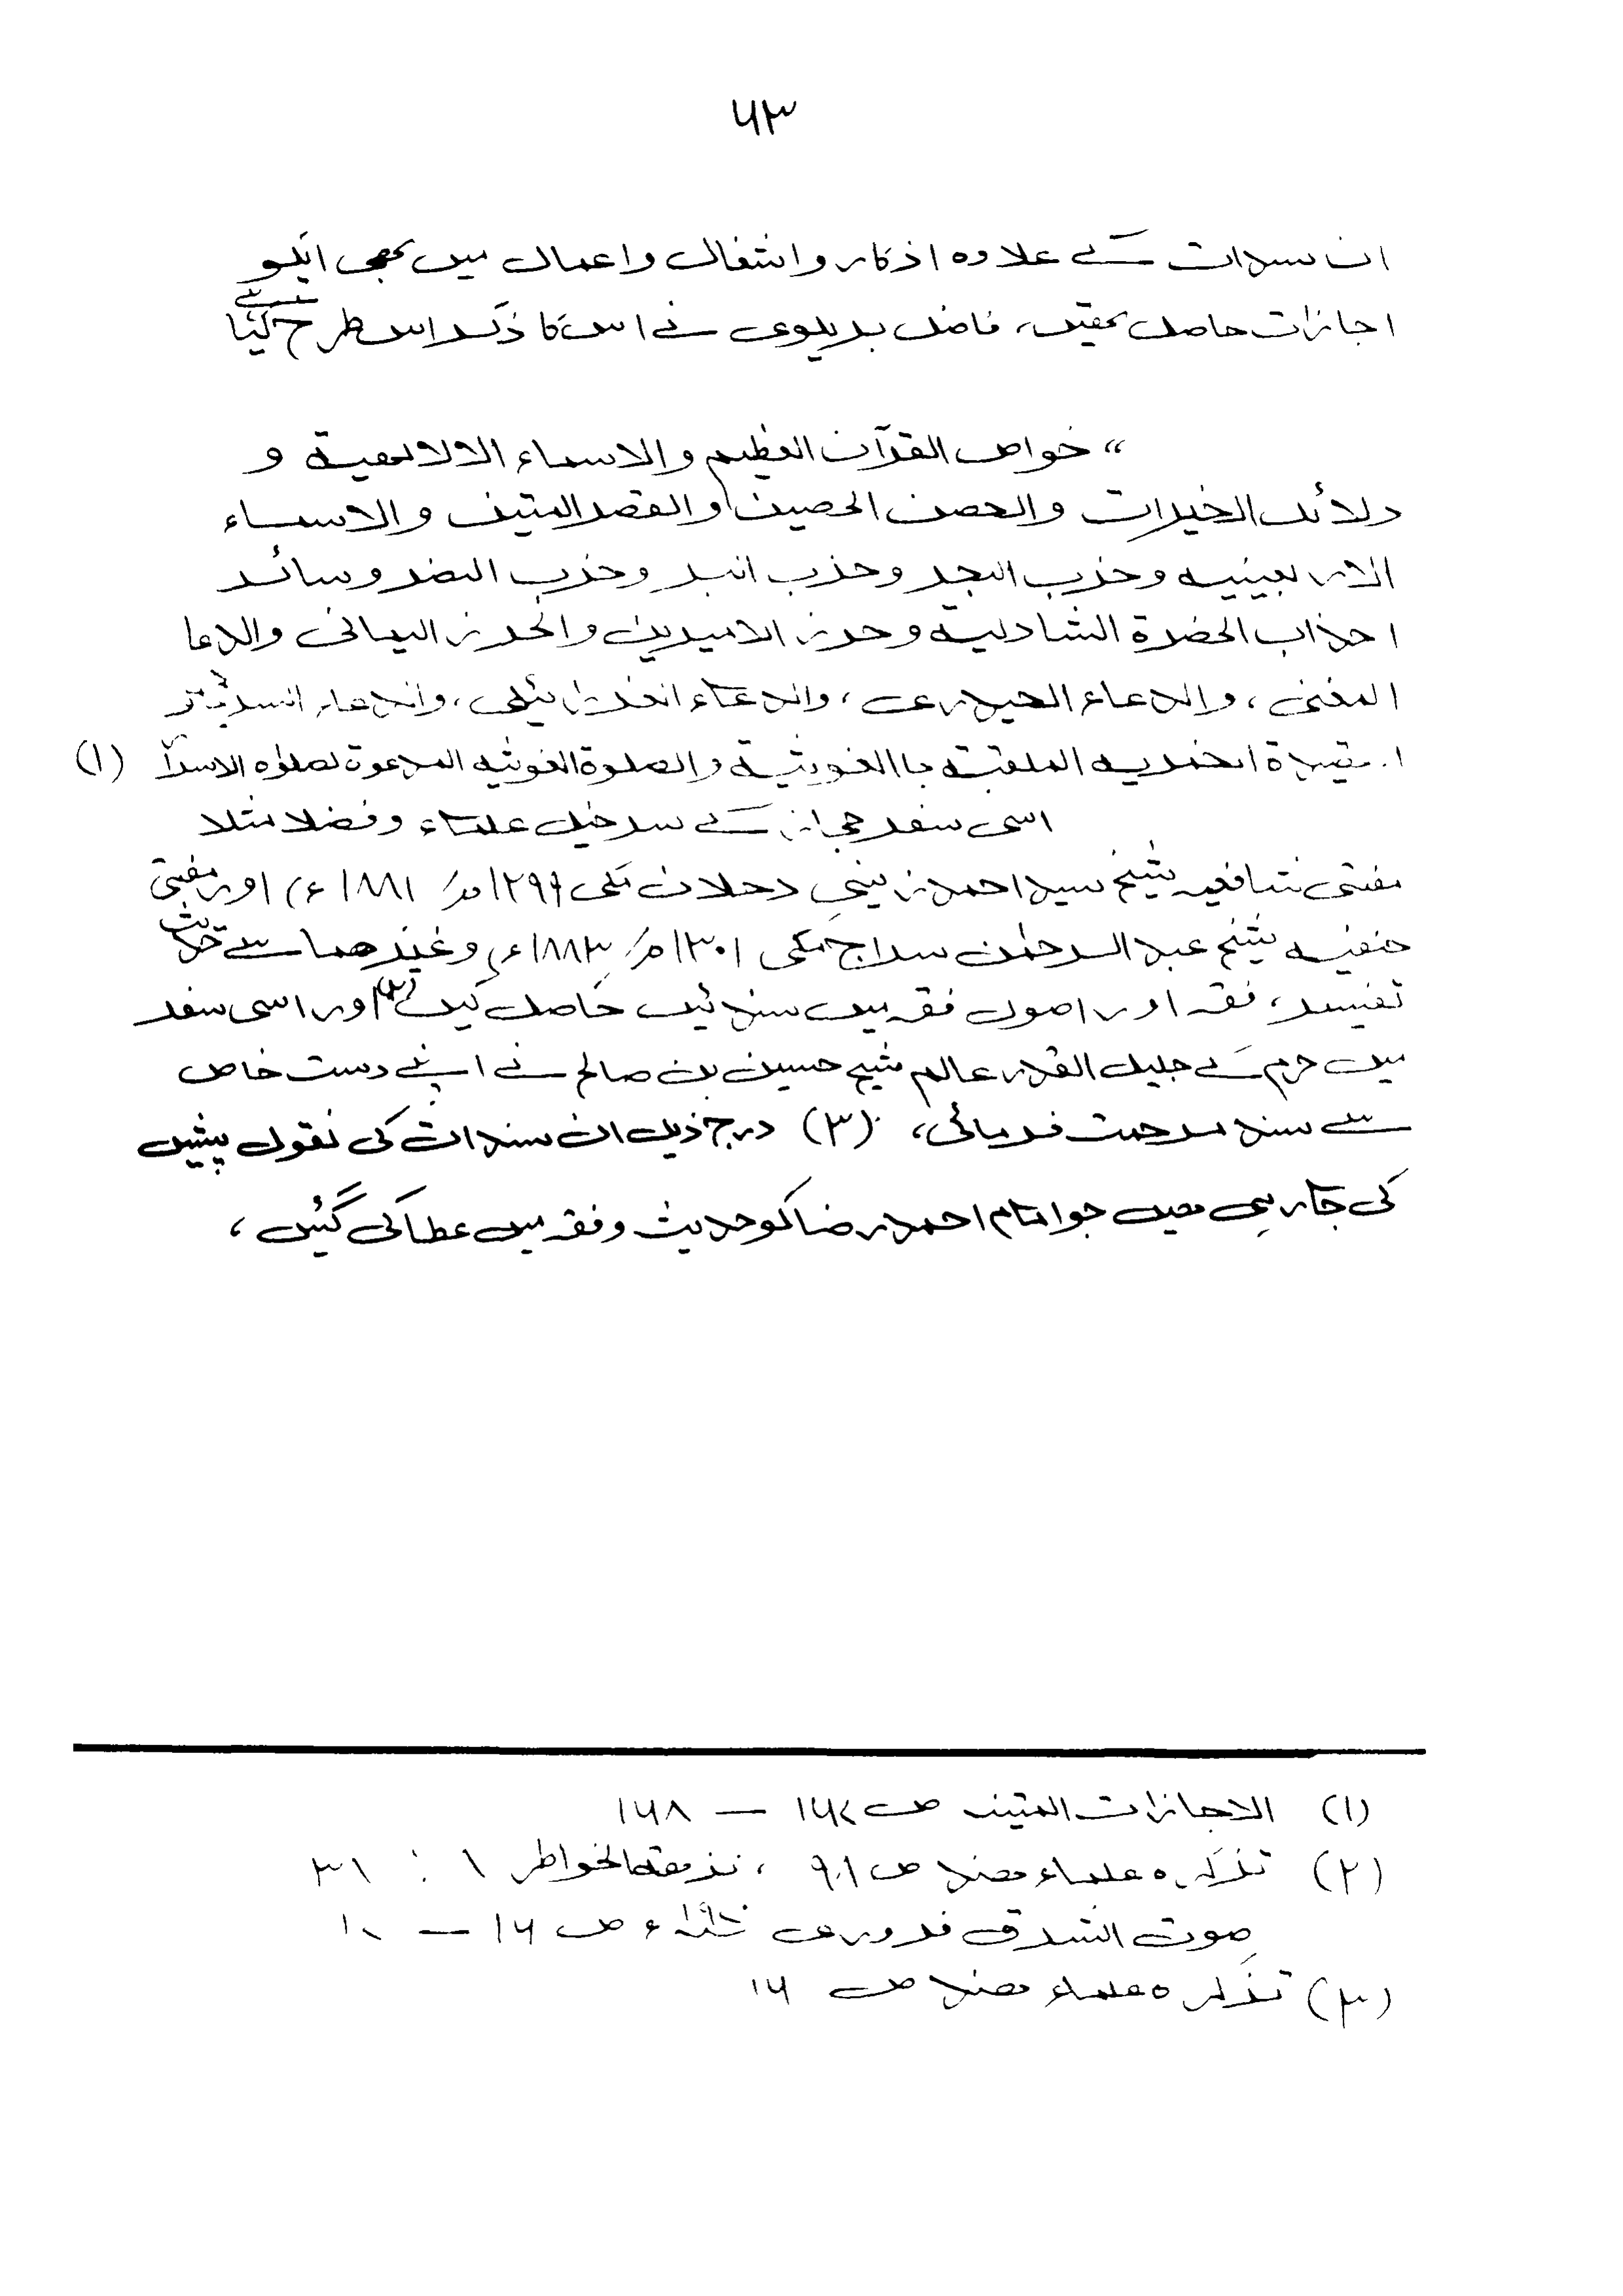 ۶۳
ان سندات کے علاوہ اذکار و اشغال و اعمال میں بھی انکو
اجازات حاصل تھیں، فاضل بریلوی نے اس کا ذکر اس طرح کیا ہے
“ خواص القرآن العظیم و الاسماء الالالھیۃ و
دلائل الخیرات و الحصن الحصین و القصر المتین و الاسماء
الاربعینیہ و حزب البحر و حزب البر و حزب النصر و سائر
احزاب الحضرۃ الشاذلیہ و حرز الامیرین و الحرز الیمانی و الدعا
المغنی، و الدعاء الحیدری، و الدعاء العزرائیلی، و الدعاء السریانی
قصیدۃ الخمریہ الملقبۃ باالغوثیۃ و الصلوۃ الغوثیہ المدعوۃ لصلوٰہ الاسرار (۱)
اسی سفر حجاز کے سرخیل علماء و فضلا مثلا
مفتی شافعیہ شیخ سید احمد زینی دحلان مکی (۱۲۹۹ھ/ ۱۸۸۱ء) اور مفتی
حنفیہ شیخ عبد الرحمٰن سراج مکی ۱۳۰۱ھ/ ۱۸۸۳ء) و غیرھما سے حدیث
تفسیر، فقہ اور اصول فقہ میں سندیں حاصل کیں (۲) اور اسی سفر
میں حرم کے جلیل القدر عالم شیخ حسین بن صالح نے اپنے دست خاص
سے سند مرحمت فرمائی، (۳) درج ذیل ان سندات کی نقول پیش
کی جارہی ھیں جو امام احمد رضا کو حدیث و فقہ میں عطا کی گئیں،
(۱) الاجازات المتینہ ص ۱۶۷ — ۱۶۸
(۲) تذکرہ علماء ھند ص ، نزھۃ الخواطر ۱ : ۳۱
صوت الشرق فروری ص ۱۶ —
(۳) تذکرہ علماء ھند ص ۱۶